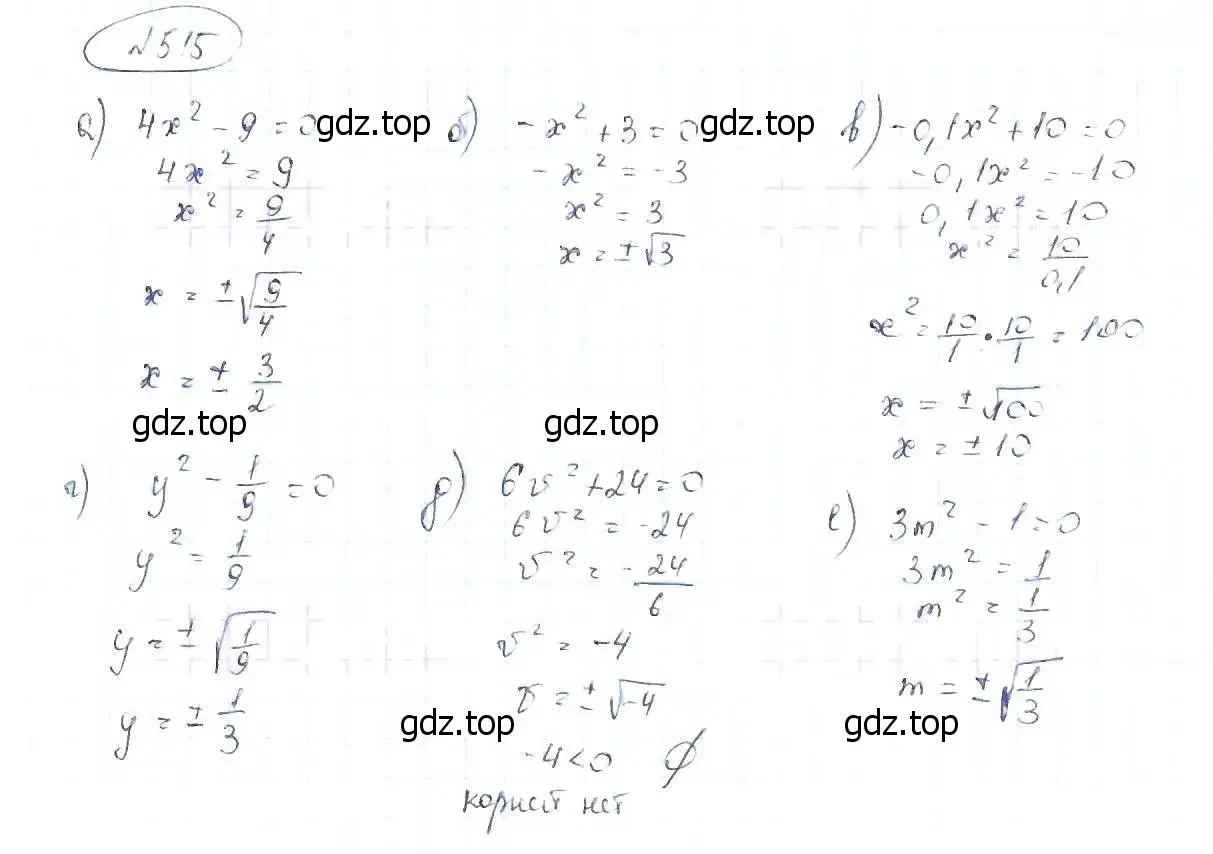 №515
а) 4x² - 9 = 0
4x² = 9
x² = 9/4
x = ±√(9/4)
x = ± 3/2
б) -x² + 3 = 0
-x² = -3
x² = 3
x = ±√3
в) -0,1x² + 10 = 0
-0,1x² = -10
0,1x² = 10
x² = 10/0,1
x² = 10/1 · 10/1 = 100
x = ±√100
x = ±10
gdz.top
gdz.top
gdz.top
gdz.top
г) y² - 1/9 = 0
y² = 1/9
y = ±√(1/9)
y = ± 1/3
д) 6v² + 24 = 0
6v² = -24
v² = -24/6
v² = -4
v = ±√-4
-4 < 0 ∅
корней нет
е) 3m² - 1 = 0
3m² = 1
m² = 1/3
m = ±√(1/3)
gdz.top
gdz.top